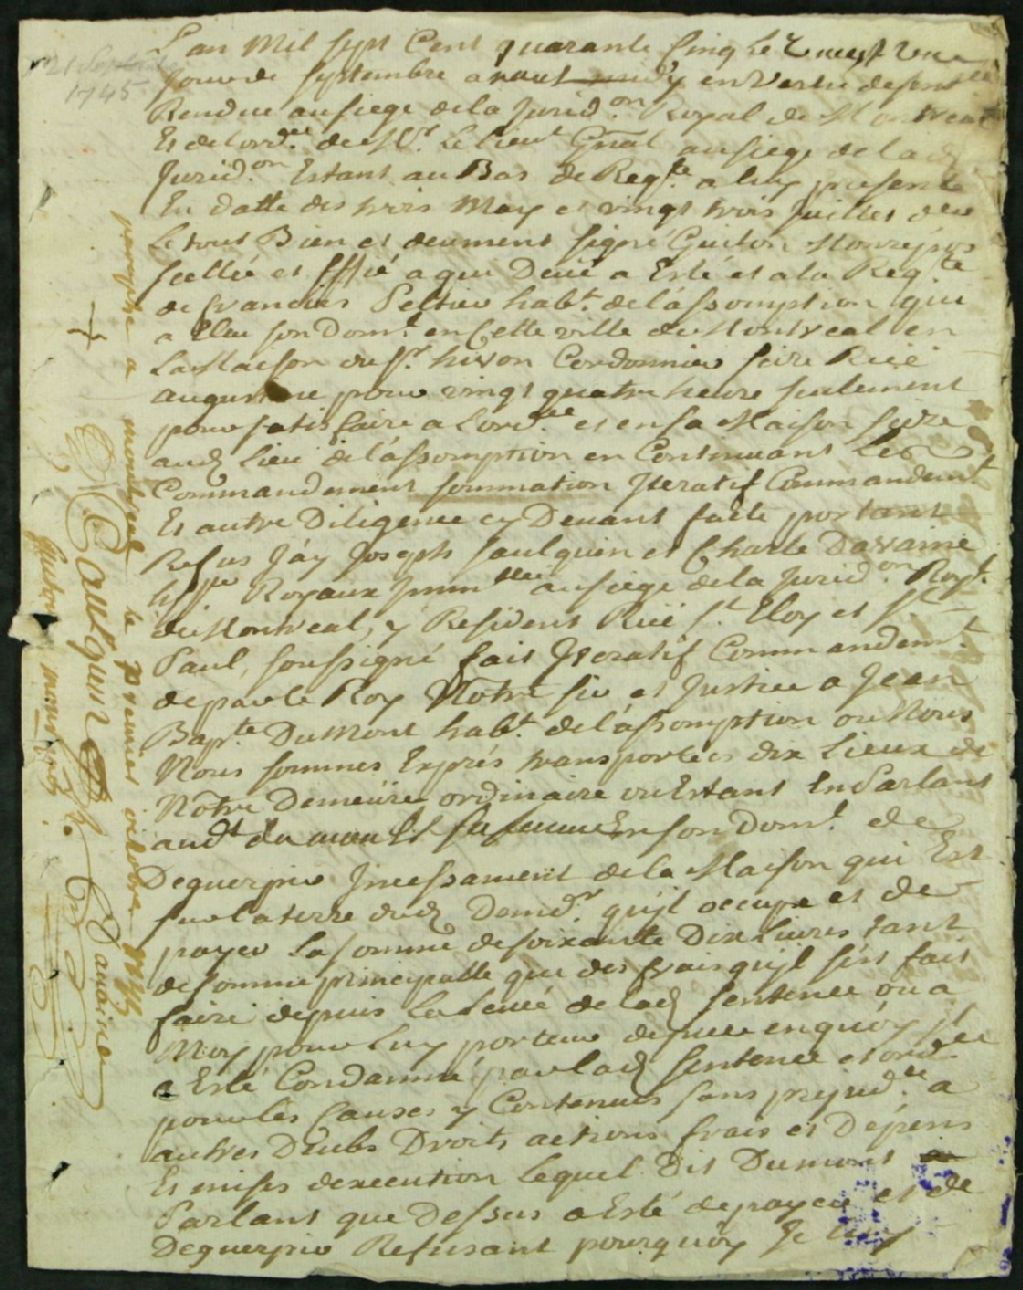 21 Septembre
1745
L'an Mil sept Cent quarante Cinq Le vingt une
Jour de septembre avant midy en Vertu de sentce
Rendue au siege de la Jurid.on Royal de Montreal
Et de l'ord.ce de Mr. Le Lieut Gnal au siege de la d
Jurid.on Estant au Bas de Reg.te a luy presenté
En datte des trois May et vingt trois Juillet der
Le tout Bien et deument signé Guiton Monrepos
scellée et a qui Devié a Esté et a la Reqte
de francois Peltier habt. de l'assomption qui
a Elue son Domt. en Cette ville de Montreal en
La Maison du Sr. hivon Cordonnier size Rüe
augustine pour vingt quatre heure seulement
pour satisfaire a L'ord.ce et en sa Maison size
aud Lieu de l'assomption en Continuant Les
Commandement sommation Iteratif Commandemt
Et autre Diligence cy Devant faite portant
Refus Jáy Joseph Saulquin et Charle Davaine
hssrs Royaux Immlles au siege de la Jurid.on Royl.
de Montreal, y Resident Rüe St. Eloy et St
Paul, soussigné fait Iteratif Commandemt.
de par le Roy Notre sir et Justice a Jean
Bapte. DuMont habt. de l'assomption ou Nous
Nous sommes Exprés transportées dix Lieux de
Nôtre Demeüre ordinaire ou Estant En Parlant
audt du mont Et sa femme En son Domt. de
Deguerpir Incessament de la Maison qui Est
sur la terre dud Demdr. qu'jl occupe et de
payer La somme de soixante Dix Livres tant
de somme principalle que des frais qu'jl s'est fait
faire depuis La de lad sentence ou a
Moy pour Luy porteur de piece en quóy jl
a Esté Condamné par lad sentence et ordce
pour les Causes y Contenus sans prejud.ce a
autres Deubs Droits actions frais et Dépens
Et mises dexecution lequel Dit Dumont
Parlant que Dessus a Esté de payer et de
Deguerpir Refusant pourquóy Je luy
paraphé a montreal le premier octobre
Guiton monrepos
Saulquin
Davaine